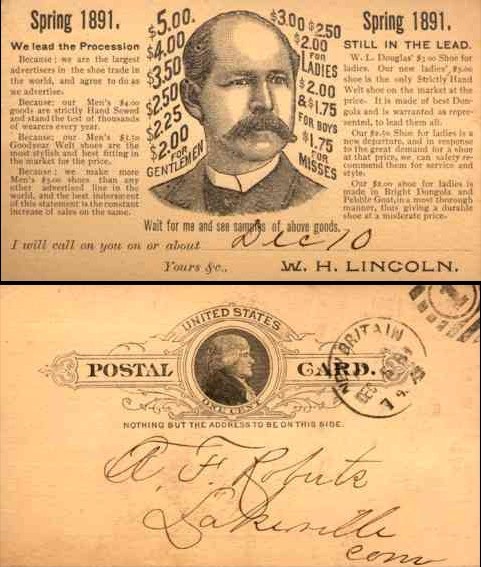 Spring 1891.
We lead the Procession
Because: we are the largest
advertisers in the shoe trade in
the world, and agree to do as
we advertise.
Because: our Men's $4.00
goods are strictly Hand Sewed
and stand the test of thousands
of wearers every year.
Because: our Men's
Goodyear Welt shoes are the
most stylish and best fitting in
the market for the price.
Because: we make more
Men's $3.00 shoes than any
other advertised line in the
world, and the best indorsement
of this statement is the constant
increase of sales on the same.
$5.00.
$4.00
$3.50
$2.50
$2.25
$2.00
FOR
GENTLEMEN
$3.00 $2.50
$2.00
FOR
LADIES
$2.00
& $1.75
FOR BOYS
$1.75
FOR
MISSES
Spring 1891.
STILL IN THE LEAD.
W. L. Douglas' $3.00 Shoe for
ladies. Our new ladies' $3.00
shoe is the only Strictly Hand
Welt shoe on the market at the
price. It is made of best Don-
gola and is warranted as repre-
sented, to lead them all.
Our $2.50 Shoe for ladies is a
new departure, and in response
to the great demand for a shoe
at that price, we can safely re-
commend them for service and
style.
Our $2.00 shoe for ladies is
made in Bright Dongola and
Pebble Goat, in a most thorough
manner, thus giving a durable
shoe at a moderate price.
Wait for me and see samples of above goods.
I will call on you on or about Dec 10
Yours &c.,
W. H. LINCOLN.
UNITED STATES
POSTAL CARD.
ONE CENT
NEW BRITAIN
DEC
NOTHING BUT THE ADDRESS TO BE ON THIS SIDE.
A. F. Roberts
Lakeville
Conn